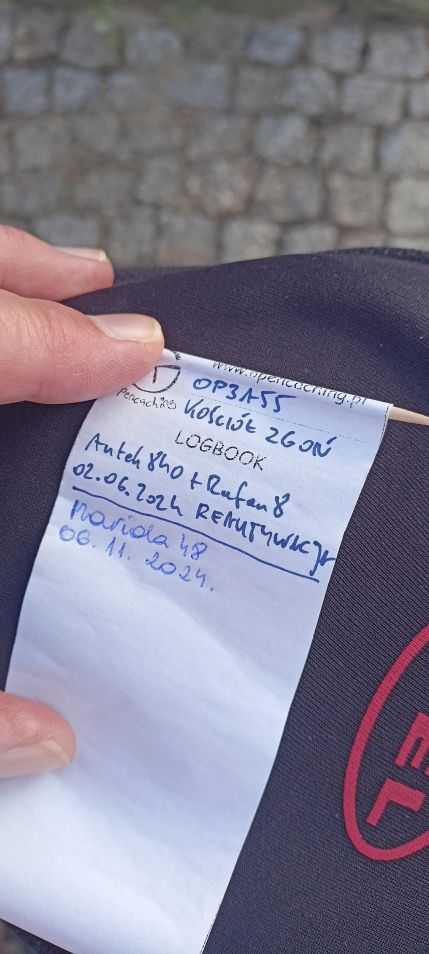 www.opencaching.pl
Opencaching
OP3A55
KOŚCIÓŁ ZGOŃ
LOGBOOK
Antek 840 + Rafan8
02.06.2024 REAKTYWACJA
Mariola 48
06.11.2024.